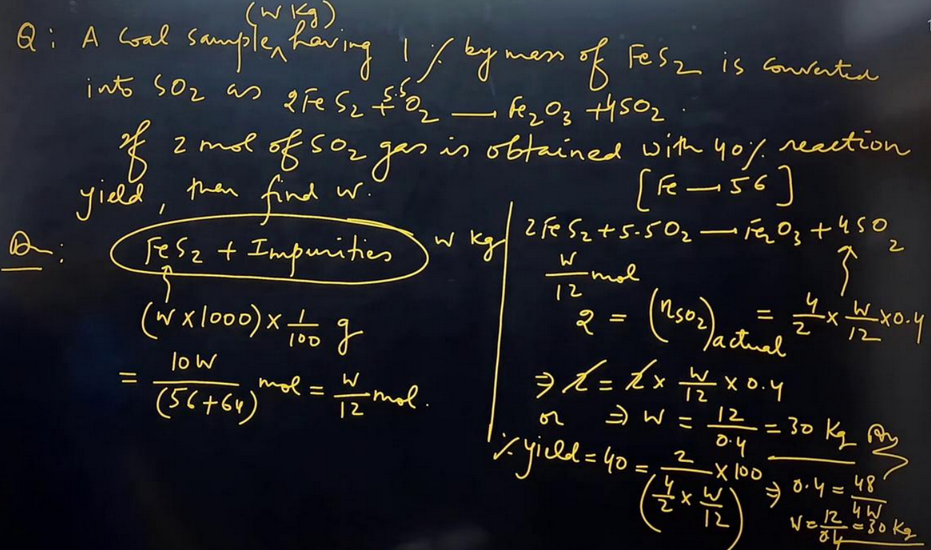 (W Kg)
Q: A Coal sample ^ having 1 % by mass of FeS2 is converted
into SO2 as 2FeS2 + 5.5O2 — Fe2O3 + 4SO2.
If 2 mol of SO2 gas is obtained with 40% reaction
yield, then find W. [Fe — 56]
FeS2 + Impurities W Kg
(W x 1000) x 1/100 g
= 10W/(56+64) mol = W/12 mol.
2FeS2 + 5.5O2 — Fe2O3 + 4SO2
W/12 mol
2 = (nSO2)actual = 4/2 x W/12 x 0.4
⇒ 2 = 2 x W/12 x 0.4
or ⇒ W = 12/0.4 = 30 Kg
% yield = 40 = 2/(4/2 x W/12) x 100
⇒ 0.4 = 48/4W
W = 12/0.4 = 30 Kg